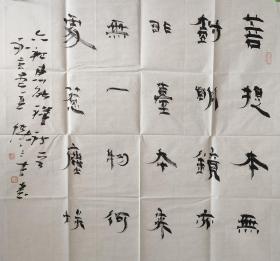 菩提本無
樹明鏡亦
非臺本來
無一物何
處惹塵埃
六祖惠能禪